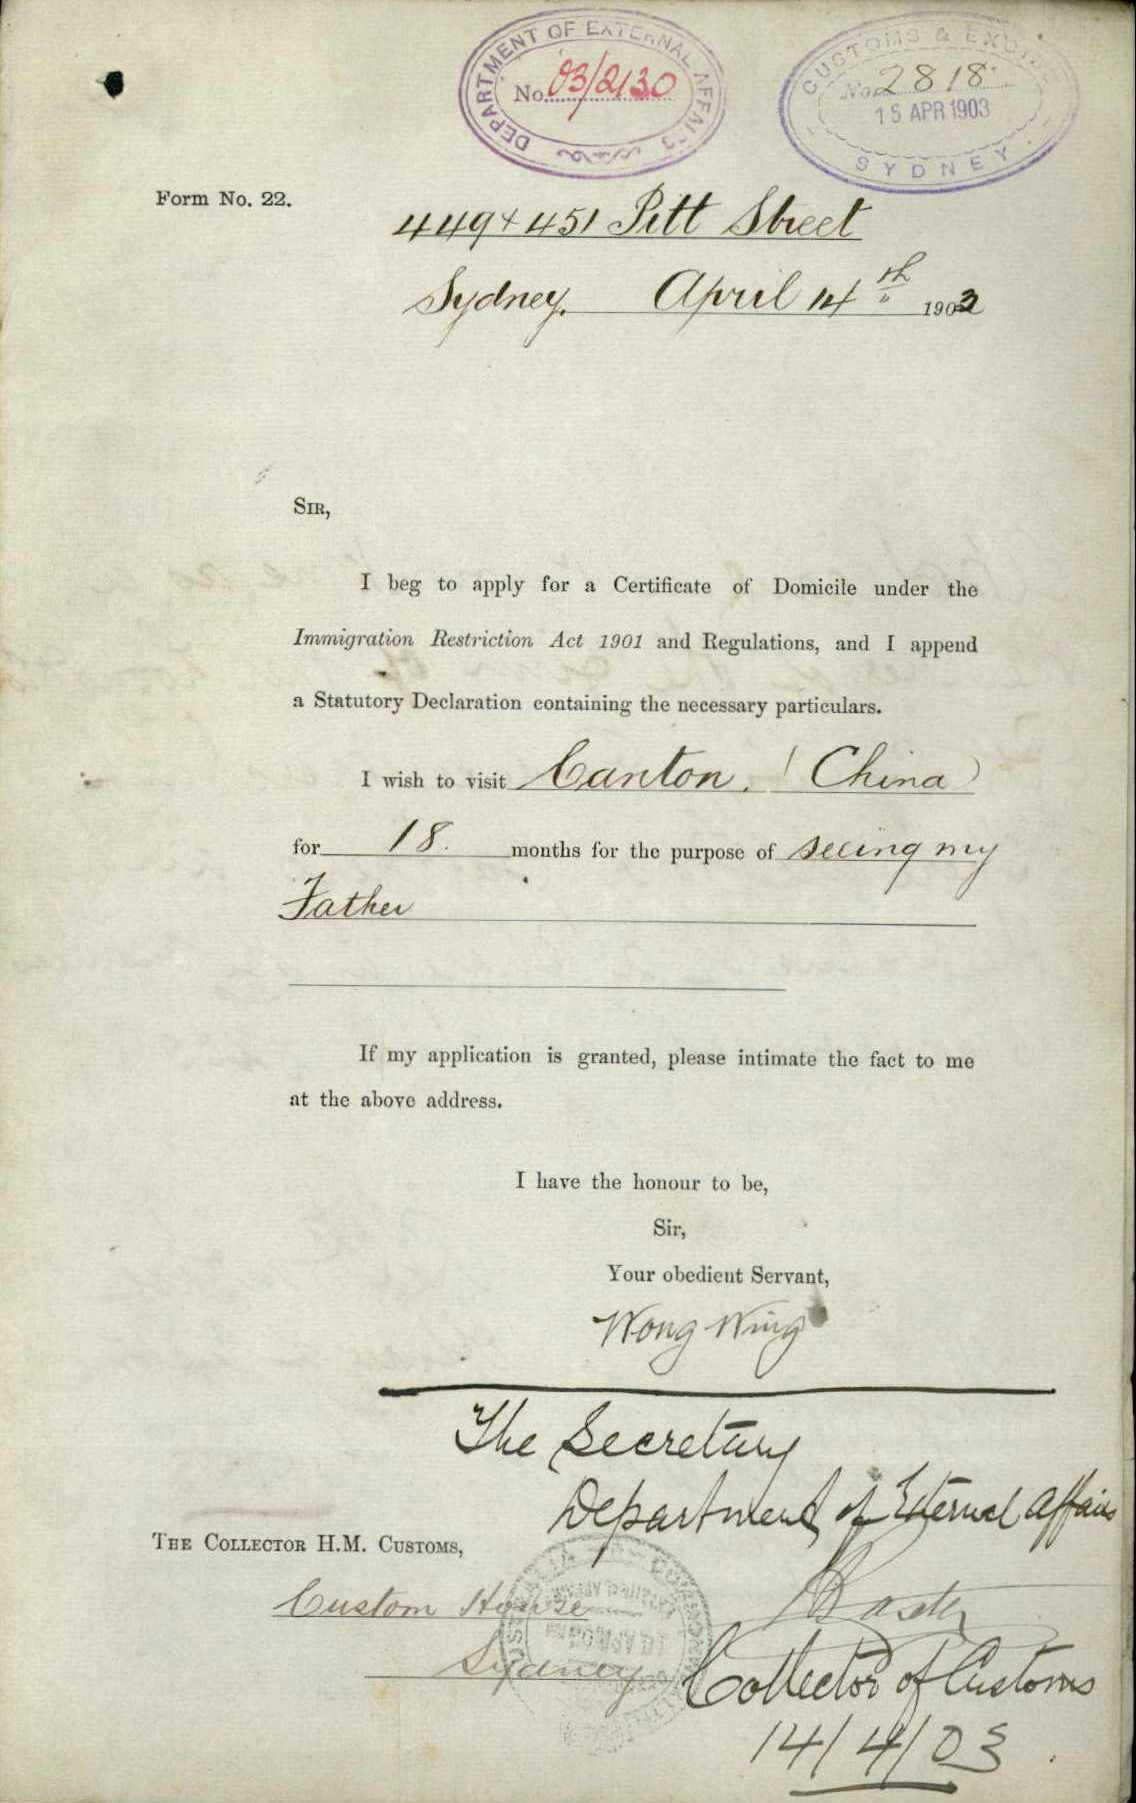 DEPARTMENT OF EXTERNAL AFFAIRS
No. 03/2130
CUSTOMS & EXCISE
No. 2818
15 APR 1903
SYDNEY
Form No. 22.
449 & 451 Pitt Street
Sydney. April 14th 1903
SIR,
I beg to apply for a Certificate of Domicile under the
Immigration Restriction Act 1901 and Regulations, and I append
a Statutory Declaration containing the necessary particulars.
I wish to visit Canton. (China)
for 18. months for the purpose of seeing my
Father
If my application is granted, please intimate the fact to me
at the above address.
I have the honour to be,
Sir,
Your obedient Servant,
Wong Wing
The Secretary
Department of External Affairs
THE COLLECTOR H.M. CUSTOMS,
Custom House
Sydney
Collector of Customs
14/4/03